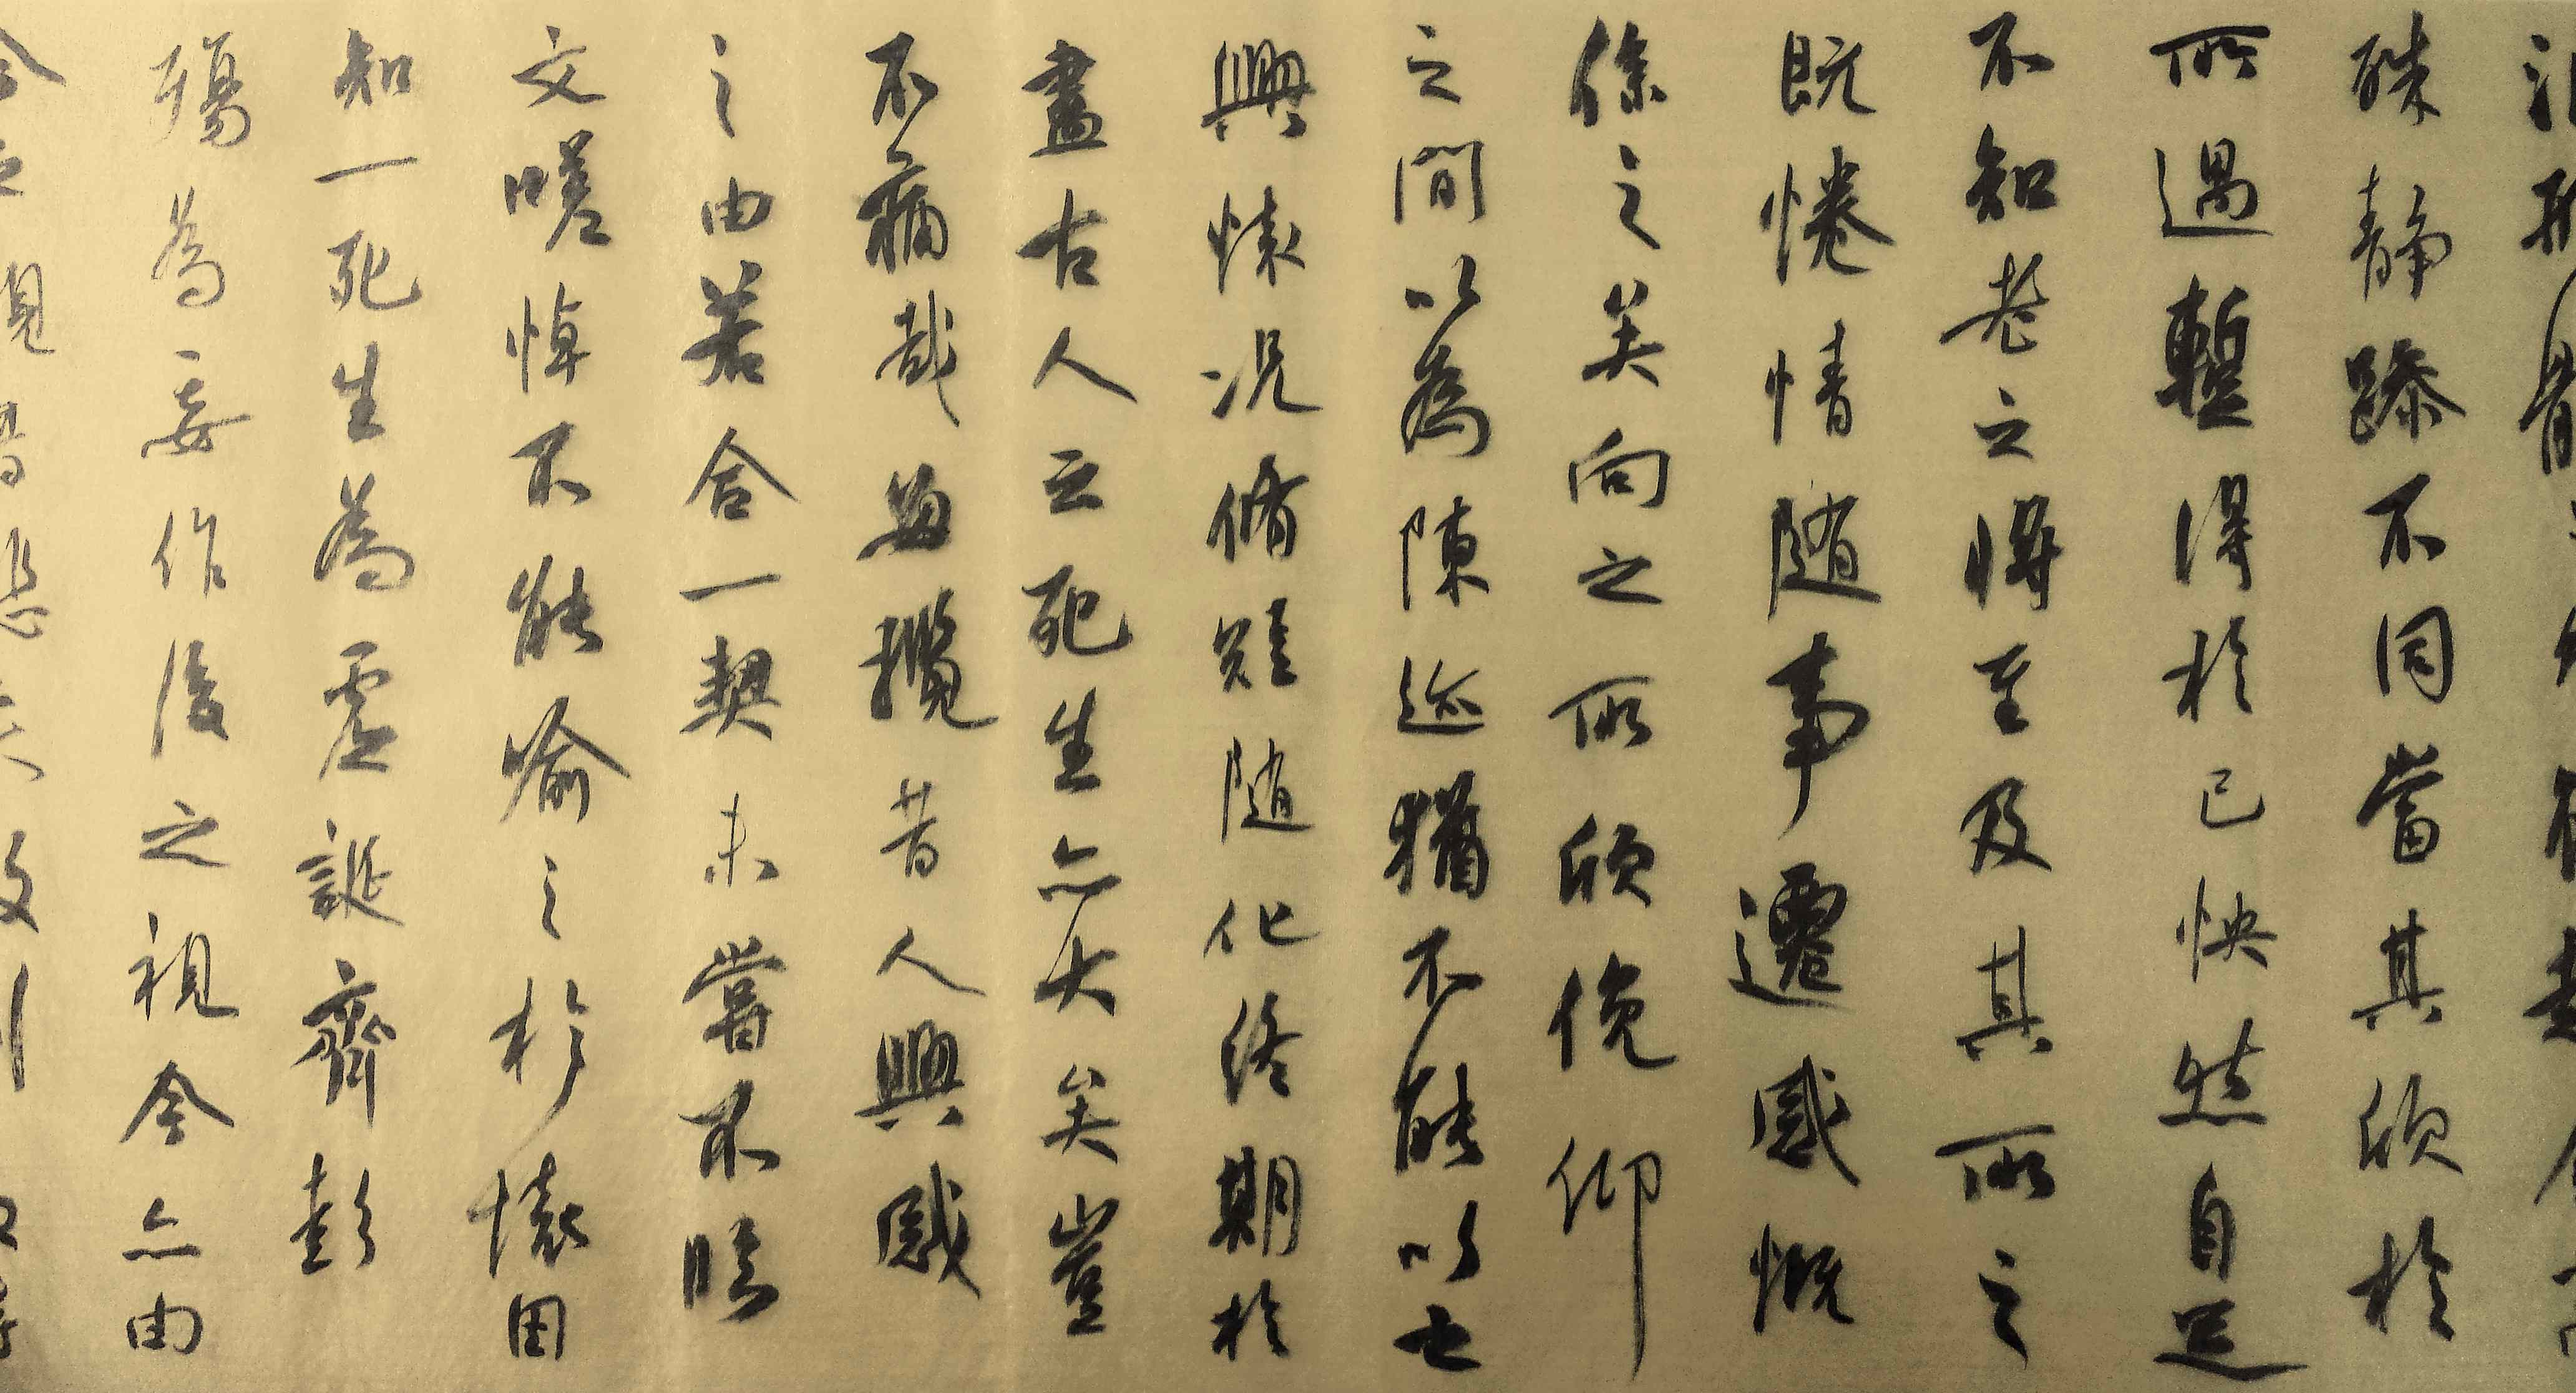 殊静躁不同當其欣於
所遇蹔得於己怏然自足
不知老之將至及其所之
既惓情随事遷感慨
係之矣向之所欣俛仰
之間以為陳迹猶不能以之
興懷況脩短随化終期於
盡古人云死生亦大矣豈
不痛哉每攬昔人興感
之由若合一契未嘗不臨
文嗟悼不能喻之於懷固
知一死生為虛誕齊彭
殤為妄作後之視今亦由